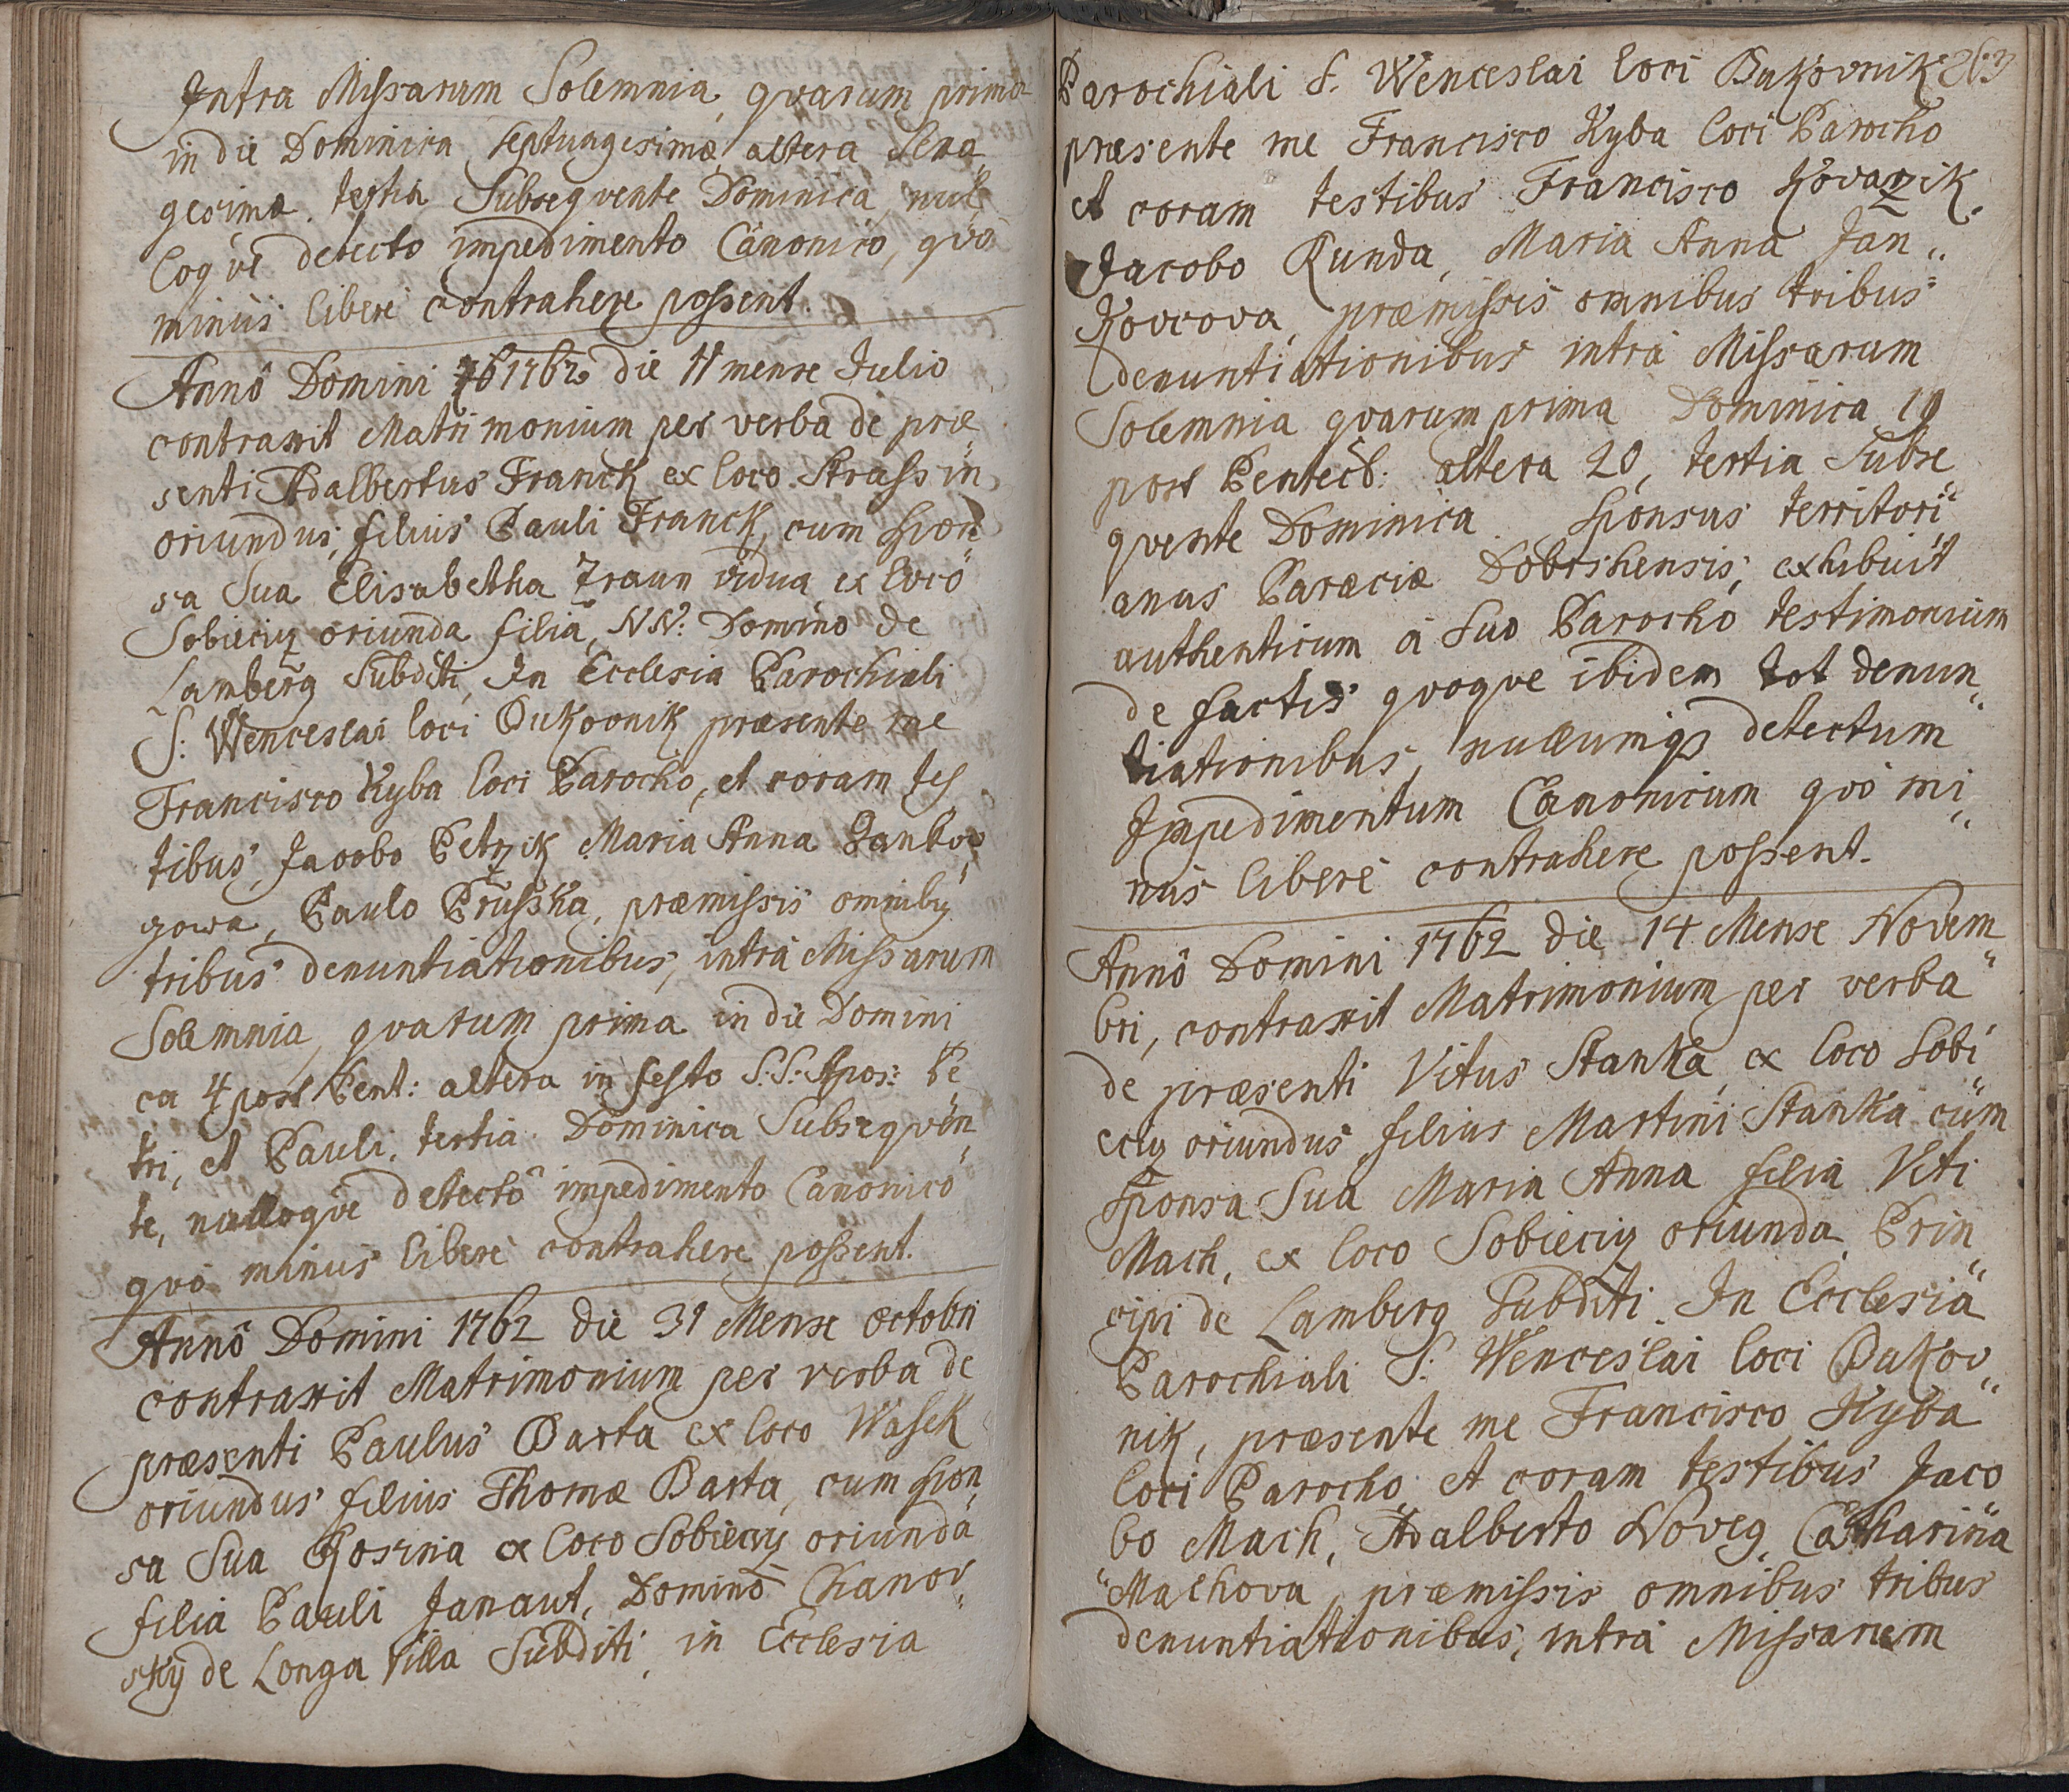 Intra Missarum Solemnia, qvarum prima
in die Dominica septuagesimæ altera sexa„
gesimæ. tertia Subseqvente Dominica, nul„
loqve detecto impedimento Canonico, qvo
minus libere contrahere possent.
Annô Domini 1762 die 11 mense Julio
contraxit Matrimonium per verba de præ„
senti Adalbertus Franck ex loco Strassin
oriundus, filius Pauli Franck, cum spon„
sa Sua Elisabetha Traun vidua ex loco
Sobieciz oriunda filia NN: Domino de
Lamberg Subditi, In Ecclesia Parochiali
S: Wenceslai loci Bukovnik præsente me
Francisco Kyba loci Parocho, et coram tes„
tibus, Jacobo Petrzik Maria Anna Janko„
gowa, Paulo Prusska, præmissis omnibus
tribus denuntiationibus, intra Missarum
Solemnia, qvarum prima in die Domini
ca 4 post Pent: altera in festo S.S: Apos: Pe„
tri, et Pauli. tertia Dominica Subseqven„
te, nulloqve detectô impedimento Canonico
qvo minus libere contrahere possent.
Annô Domini 1762 die 31 Mense octobri
contraxit Matrimonium per verba de
præsenti Paulus Barta ex loco Wasek
oriundus filius Thomæ Barta, cum spon„
sa Sua Rosina ex loco Sobieciz oriunda
filia Pauli Janaut, Domino Chanov„
skÿ de Longa Villa Subditi, in Ecclesia
Parochiali S. Wenceslai loci Bukovnik 263
præsente me Francisco Kyba loci Parocho
et coram testibus Francisco Kovarzik,
Jacobo Runda, Maria Anna Jan„
Kovcova, præmissis omnibus tribus
denuntiationibus intra Missarum
Solemnia qvarum prima Dominica 19
post Pentec: altera 20, tertia Subse„
qvente Dominica. Sponsus territori„
anus Paræciæ Dobrshensis, exhibuit
authenticum à Suo Parocho testimonium
de factis qvoqve ibidem tot denun„
tiationibus, nullumqz detectum
Impedimentum Canonicum qvô mi„
nus liberè contrahere possent.
Annô Domini 1762 die 14 Mense Novem„
bri, contraxit Matrimonium per verba
de præsenti Vitus Stanka, ex loco Sobi„
eciz oriundus, filius Martini Stanka cum
sponsa Sua Maria Anna filia Viti
Mach, ex loco Sobieciz oriunda, Prin„
cipi de Lamberg Subditi. In Ecclesia
Parochiali S: Wenceslai loci Bukov„
nik, præsente me Francisco Kyba
loci Parocho et coram testibus Jaco„
bo Mach, Adalberto Noveg, Catharina
Machova, præmissis omnibus tribus
denuntiationibus, intra Missarum